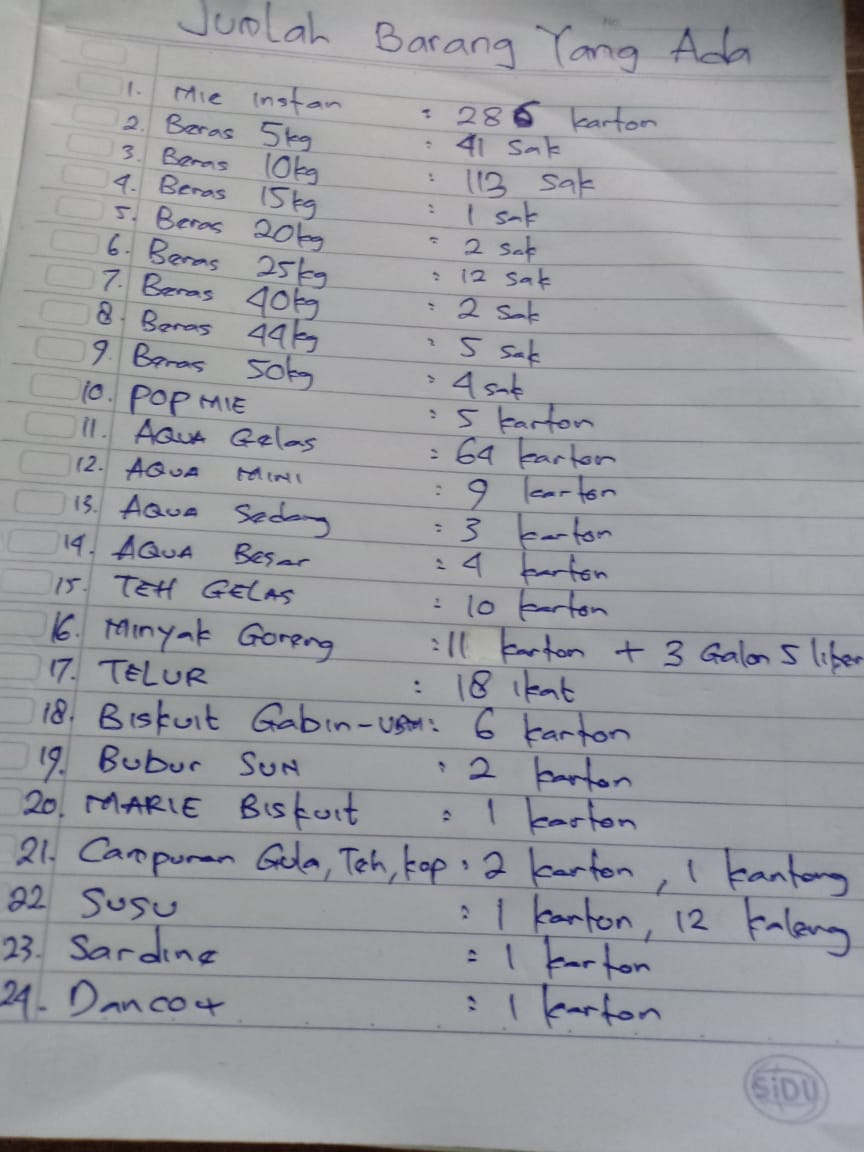 Jumlah Barang Yang Ada
1. Mie instan : 286 karton
2. Beras 5kg : 41 sak
3. Beras 10kg : 113 sak
4. Beras 15kg : 1 sak
5. Beras 20kg = 2 sak
6. Beras 25kg : 12 sak
7. Beras 40kg : 2 sak
8. Beras 44kg : 5 sak
9. Beras 50kg : 4 sak
10. POP MIE : 5 karton
11. AQUA Gelas : 64 karton
12. AQUA MINI : 9 karton
13. AQUA Sedang : 3 karton
14. AQUA Besar : 4 karton
15. TEH GELAS : 10 karton
16. Minyak Goreng : 11 karton + 3 Galon 5 liter
17. TELUR : 18 ikat
18. Biskuit Gabin-UBM : 6 karton
19. Bubur SUN : 2 karton
20. MARIE Biskuit : 1 karton
21. Campuran Gula, Teh, kop : 2 karton, 1 kantong
22 SUSU : 1 karton, 12 kaleng
23. Sardine = 1 karton
24. Dancow : 1 karton
SiDU